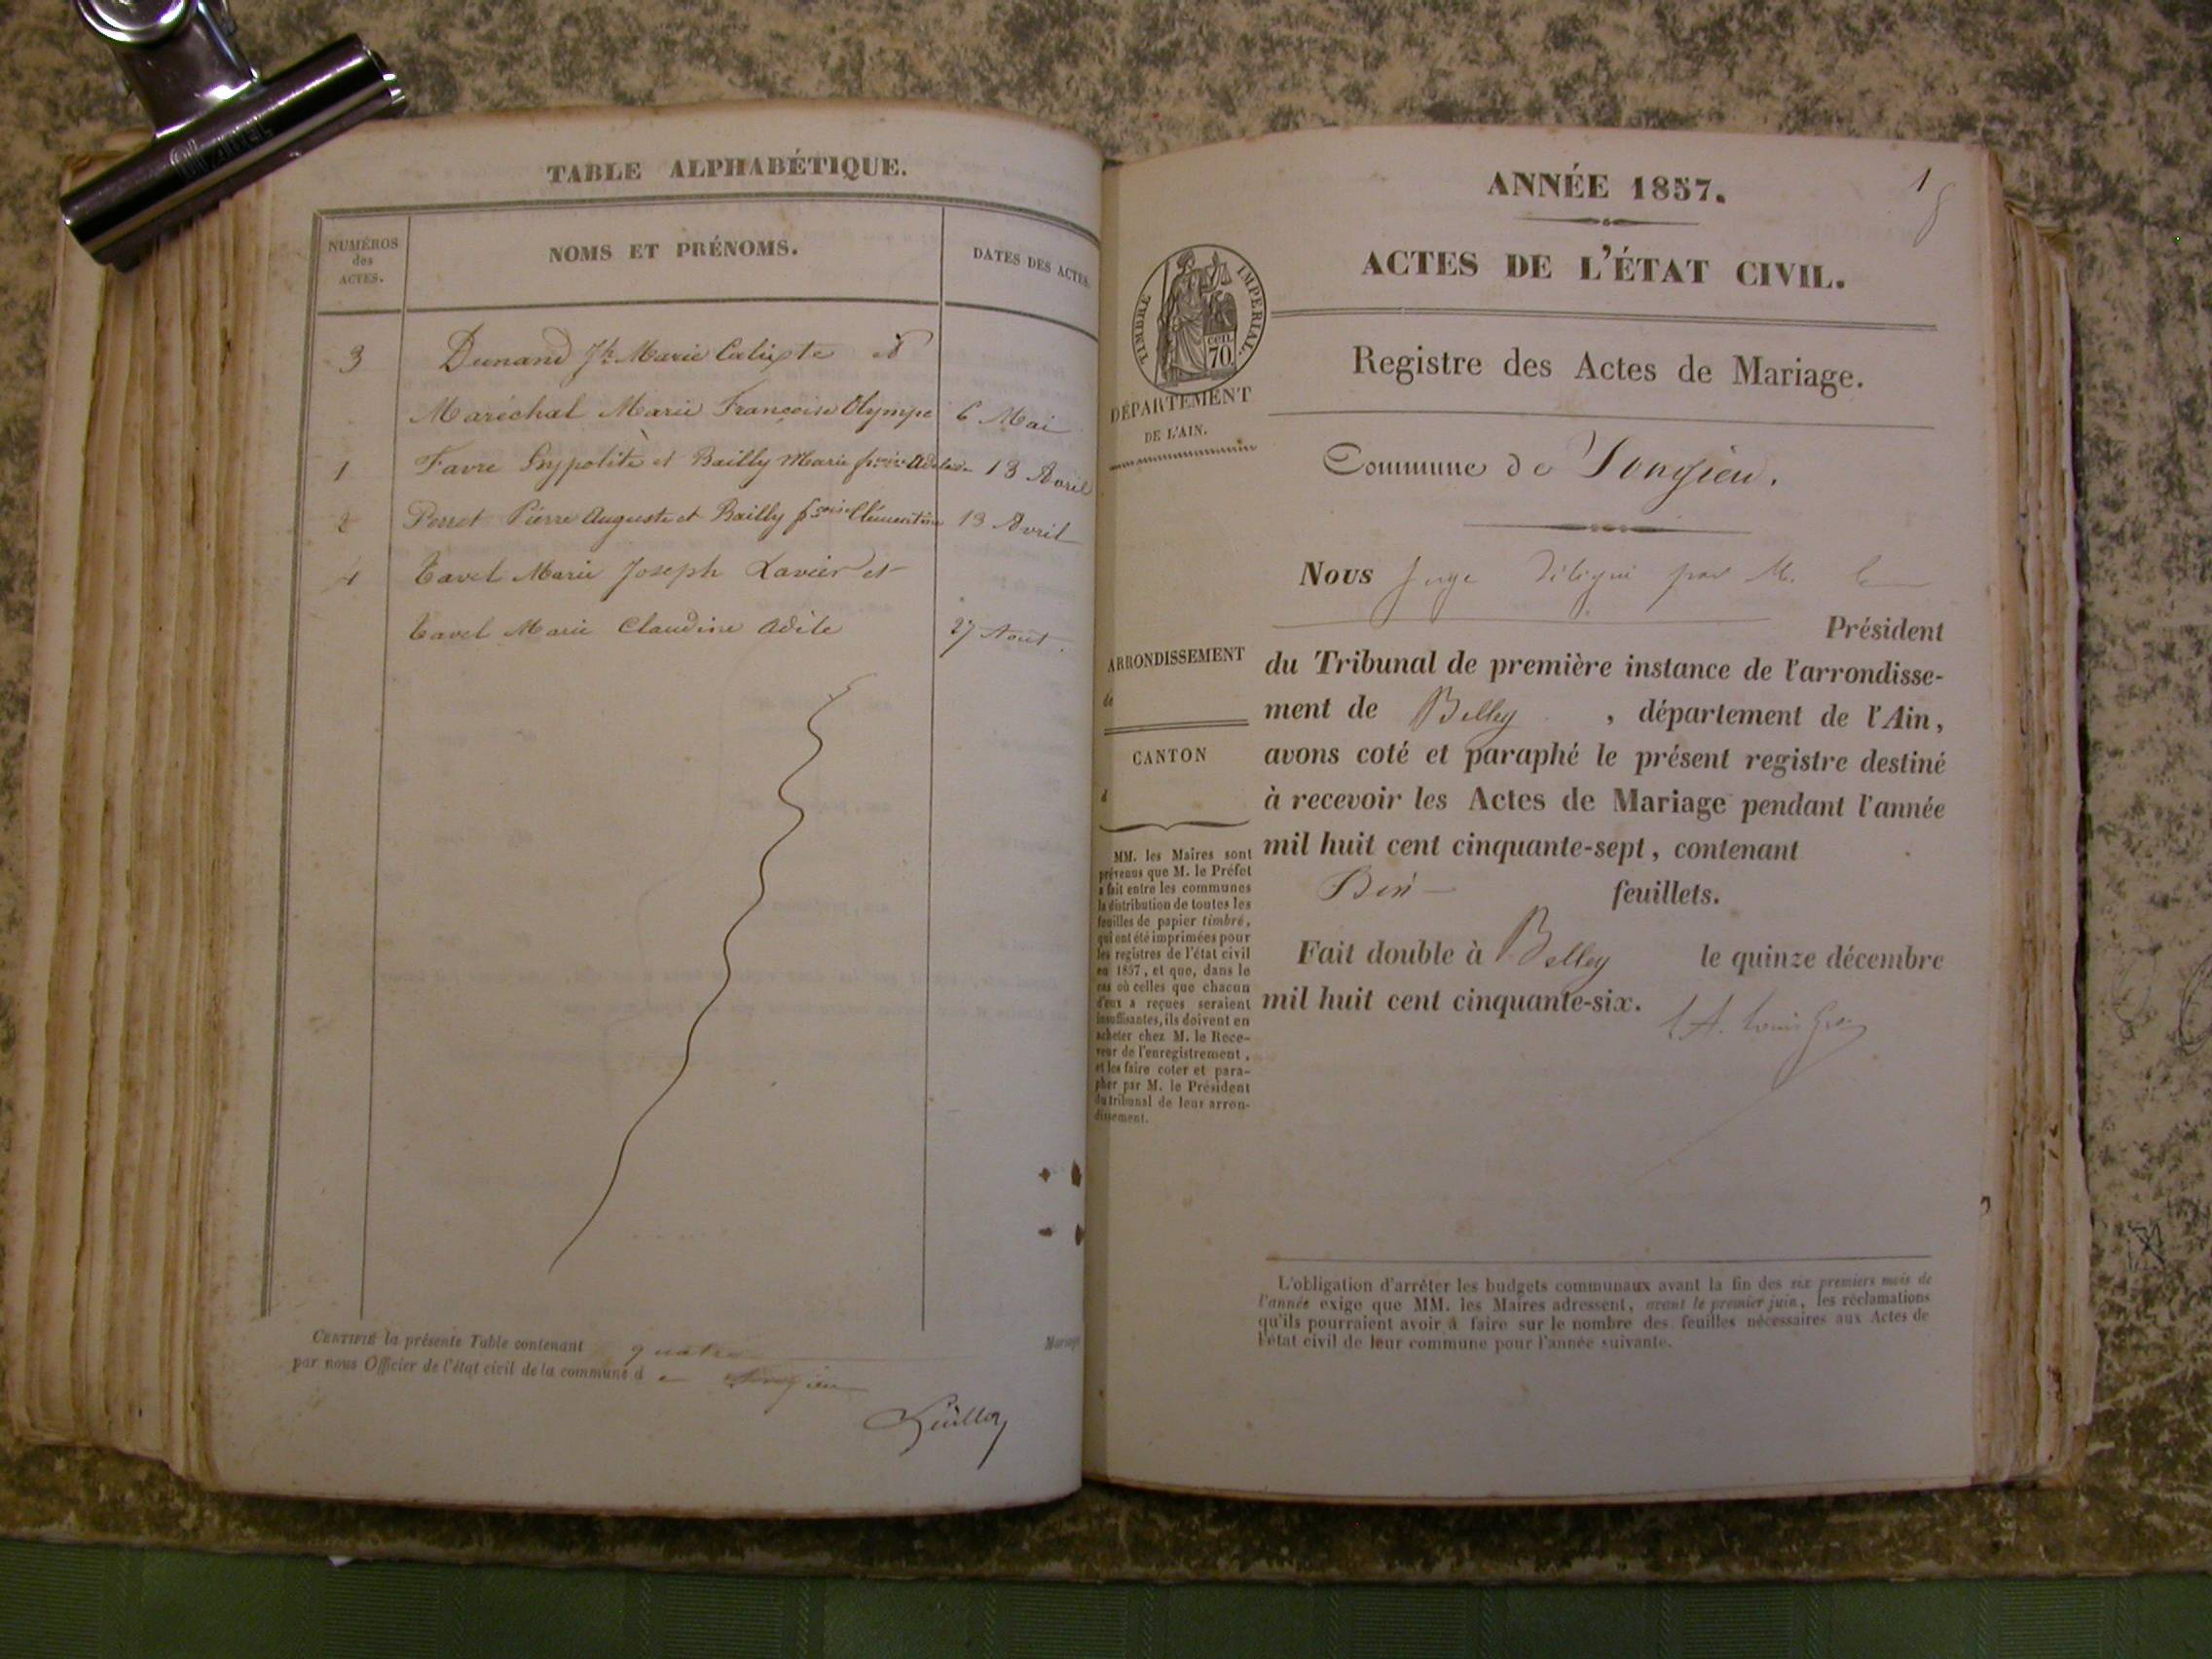 TABLE ALPHABÉTIQUE.
NUMÉROS des ACTES.
NOMS ET PRÉNOMS.
DATES DES ACTES.
3 Dunand Jh Marie Calixte et
Maréchal Marie Françoise Olympe 6 Mai
1 Favre Hypolite et Bailly Marie 13 Avril
2 Perret Pierre Auguste et Bailly fsoise Clémentine 13 Avril
4 Tavel Marie Joseph Xavier et
Tavel Marie Claudine Adèle 27 Aout.
CERTIFIÉ la présente Table contenant quatre Mariage
par nous Officier de l'état civil de la commune de Songieu
ANNÉE 1857.
1
ACTES DE L'ÉTAT CIVIL.
TIMBRE IMPERIAL.
CEN. 70
DÉPARTEMENT
DE L'AIN.
Registre des Actes de Mariage.
Commune de Songieu.
Nous Juge délégué par M. le
Président
ARRONDISSEMENT
de
CANTON
d
du Tribunal de première instance de l'arrondisse-
ment de Belley, département de l'Ain,
avons coté et paraphé le présent registre destiné
à recevoir les Actes de Mariage pendant l'année
mil huit cent cinquante-sept, contenant
feuillets.
Fait double à Belley le quinze décembre
mil huit cent cinquante-six.
MM. les Maires sont
prévenus que M. le Préfet
a fait entre les communes
la distribution de toutes les
feuilles de papier timbré,
qui ont été imprimées pour
les registres de l'état civil
en 1857, et que, dans le
cas où celles que chacun
d'eux a reçues seraient
insuffisantes, ils doivent en
acheter chez M. le Rece-
veur de l'enregistrement,
et les faire coter et para-
pher par M. le Président
du tribunal de leur arron-
dissement.
L'obligation d'arrêter les budgets communaux avant la fin des six premiers mois de
l'année exige que MM. les Maires adressent, avant le premier juin, les réclamations
qu'ils pourraient avoir à faire sur le nombre des feuilles nécessaires aux Actes de
l'état civil de leur commune pour l'année suivante.